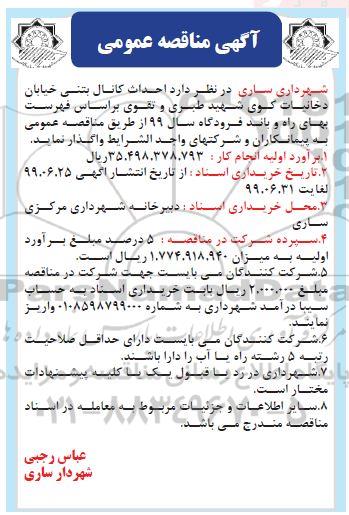 آگهی مناقصه عمومی
شهرداری ساری در نظر دارد احداث کانال بتنی خیابان
دخانیات کوی شهید طبری و تقوی براساس فهرست
بهای راه و باند فرودگاه سال ۹۹ از طریق مناقصه عمومی
به پیمانکاران و شرکتهای واجد الشرایط واگذار نماید.
۱.برآورد اولیه انجام کار : ۳۵.۴۹۸.۳۷۸.۷۹۳ریال
۲.تاریخ خریداری اسناد : از تاریخ انتشار آگهی ۹۹.۰۶.۲۵
لغایت ۹۹.۰۶.۳۱
۳.محل خریداری اسناد : دبیرخانه شهرداری مرکزی
ساری
۴.سپرده شرکت در مناقصه : ۵ درصد مبلغ برآورد
اولیه به میزان ۱.۷۷۴.۹۱۸.۹۴۰ ریال است.
۵.شرکت کنندگان می بایست جهت شرکت در مناقصه
مبلغ ۲.۰۰۰.۰۰۰ ریال بابت خریداری اسناد به حساب
سیبا درآمد شهرداری به شماره ۰۱۰۸۵۹۸۷۹۹۰۰۰ واریز
نمایند.
۶.شرکت کنندگان می بایست دارای حداقل صلاحیت
رتبه ۵ رشته راه یا آب را دارا باشند.
۷.شهرداری در رد یا قبول یک یا کلیه پیشنهادات
مختار است.
۸.سایر اطلاعات و جزئیات مربوط به معامله در اسناد
مناقصه مندرج می باشد.
عباس رجبی
شهردار ساری